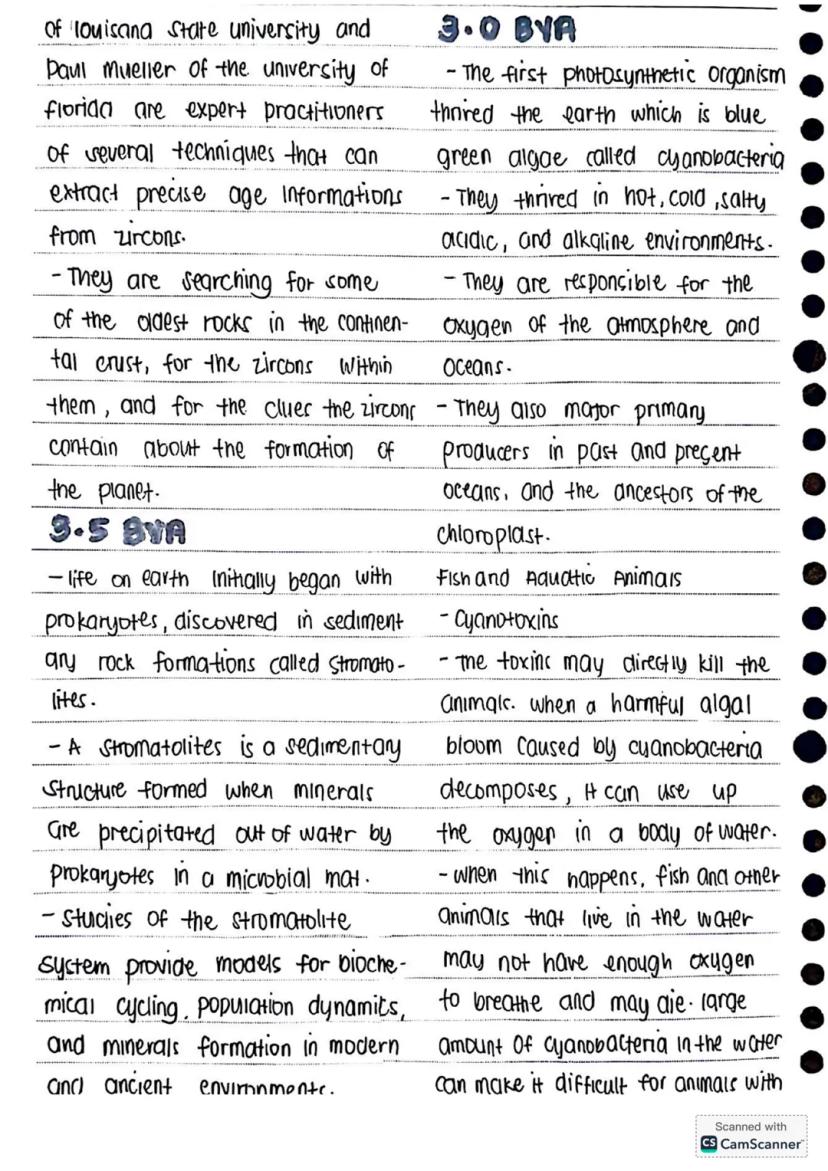 of louisana state university and
Paul Mueller of the university of
florida are expert practitioners
of several techniques that can
extract precise age informations
from zircons.
- They are searching for some
of the oldest rocks in the continen-
tal crust, for the zircons within
them, and for the clues the zircons
contain about the formation of
the planet.
3.5 BYA
- life on earth initially began with
prokaryotes, discovered in sediment
ary rock formations called stromato-
lites.
- A stromatolites is a sedimentary
structure formed when minerals
are precipitated out of water by
prokaryotes in a microbial mat.
- studies of the stromatolite
system provide models for bioche-
mical cycling, population dynamics,
and minerals formation in modern
and ancient environments.
3.0 BYA
- The first photosynthetic organism
thrived the earth which is blue
green algae called cyanobacteria
- They thrived in hot, cold, salty
acidic, and alkaline environments.
- They are responsible for the
oxygen of the atmosphere and
oceans.
- They also major primary
producers in past and present
oceans, and the ancestors of the
chloroplast.
Fish and Aquatic Animals
- Cyanotoxins
- The toxins may directly kill the
animals. when a harmful algal
bloom caused by cyanobacteria
decomposes, it can use up
the oxygen in a body of water.
- when this happens, fish and other
animals that live in the water
may not have enough oxygen
to breathe and may die. large
amount of cyanobacteria in the water
can make it difficult for animals with
Scanned with
CS CamScanner